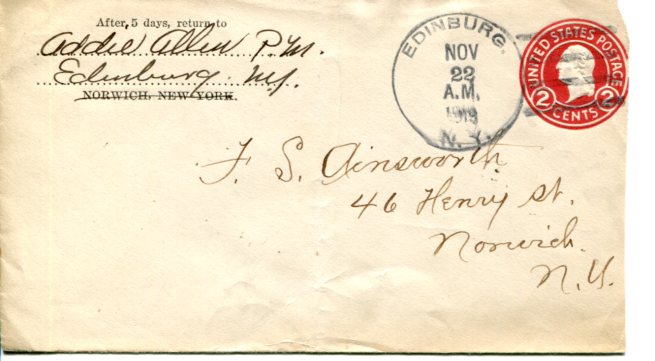 After, 5 days, return to
Addie Allen P.M.
Edinburg. N.Y.
NORWICH, NEW YORK.
EDINBURG,
NOV
22
A.M.
1919
N.Y.
UNITED STATES POSTAGE
2 CENTS 2
F. S. Ainsworth
46 Henry St.
Norwich.
N.Y.